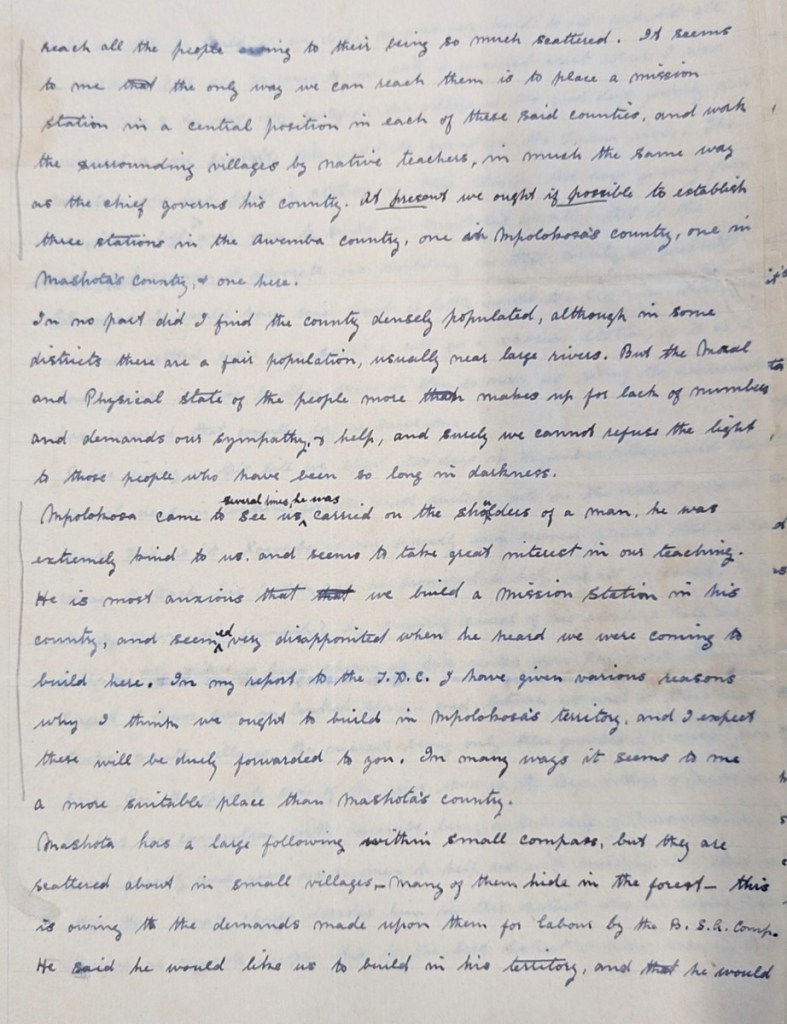 reach all the people owing to their being so much scattered. It seems
to me that the only way we can reach them is to place a mission
station in a central position in each of these said counties, and work
the surrounding villages by native teachers, in much the same way
as the chief governs his country. At present we ought if possible to establish
three stations in the Awemba country, one in Mpolokosa's country, one in
Mashota's country, & one here.
In no part did I find the country densely populated, although in some
districts there are a fair population, usually near large rivers. But the Moral
and Physical state of the people more than makes up for lack of numbers
and demands our sympathy, & help, and surely we cannot refuse the light
to those people who have been so long in darkness.
Mpolokosa came to see us several times, he was carried on the sholders of a man. he was
extremely kind to us. and seems to take great interest in our teaching.
He is most anxious that that we build a Mission Station in his
country, and seemed very disappointed when he heard we were coming to
build here. In my report to the T.D.C. I have given various reasons
why I think we ought to build in Mpolokosa's territory, and I expect
these will be duly forwarded to you. In many ways it seems to me
a more suitable place than Mashota's country.
Mashota has a large following within small compass, but they are
scattered about in small villages – many of them hide in the forest – this
is owing to the demands made upon them for labour by the B. S. A. Comp.
He said he would like us to build in his territory, and that he would